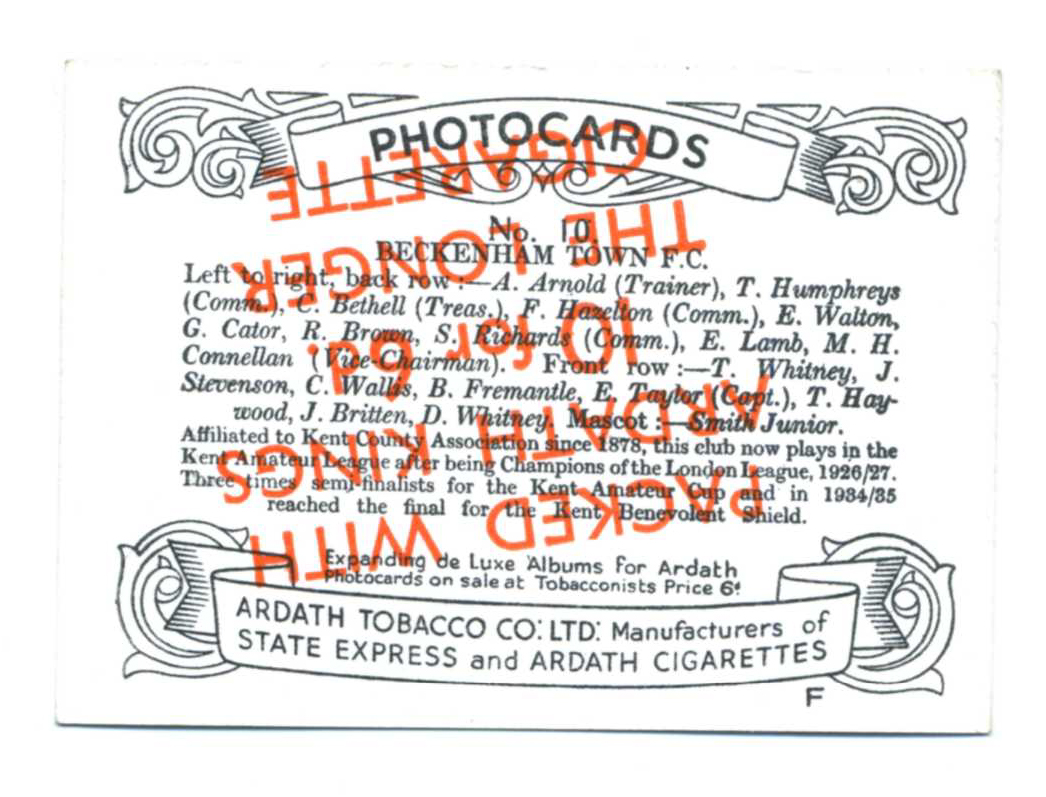 PHOTOCARDS
No. 10.
BECKENHAM TOWN F.C.
Left to right, back row :—A. Arnold (Trainer), T. Humphreys
(Comm.), C. Bethell (Treas.), F. Hazelton (Comm.), E. Walton,
G. Cator, R. Brown, S. Richards (Comm.), E. Lamb, M. H.
Connellan (Vice-Chairman). Front row :—T. Whitney, J.
Stevenson, C. Wallis, B. Fremantle, E. Taylor (Capt.), T. Hay-
wood, J. Britten, D. Whitney. Mascot :—Smith Junior.
Affiliated to Kent County Association since 1878, this club now plays in the
Kent Amateur League after being Champions of the London League, 1926/27.
Three times semi-finalists for the Kent Amateur Cup and in 1934/35
reached the final for the Kent Benevolent Shield.
Expanding de Luxe Albums for Ardath
Photocards on sale at Tobacconists Price 6d
ARDATH TOBACCO CO: LTD: Manufacturers of
STATE EXPRESS and ARDATH CIGARETTES
F
PACKED WITH
ARDATH KINGS
10 for 6d.
THE LONGER
CIGARETTE